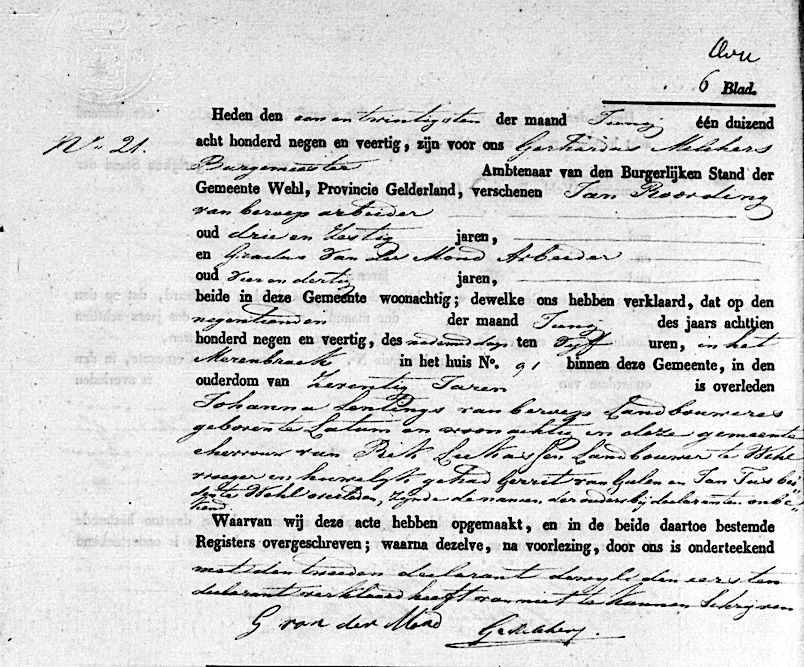 6 Blad.
Heden den een en twintigsten der maand Junij één duizend
N° 21. acht honderd negen en veertig, zijn voor ons Gerhardus Melchers
Burgemeester Ambtenaar van den Burgerlijken Stand der
Gemeente Wehl, Provincie Gelderland, verschenen Jan Roording
van beroep arbeider
oud drie en zestig jaren,
en Gradus van der Mond Arbeider
oud vier en dertig jaren,
beide in deze Gemeente woonachtig; dewelke ons hebben verklaard, dat op den
negentienden der maand Junij des jaars achttien
honderd negen en veertig, des namiddags ten vijf uren, in het
in het huis No. 91 binnen deze Gemeente, in den
ouderdom van Zeventig Jaren is overleden
Johanna Lentings van beroep Landbouweres
geboren te Latum en woonachtig in deze gemeente
ehevrouw van Rik Lukassen Landbouwer te Wehl
vroeger in huwelyk gehad Gerrit van Galen en Jan Tus bei„
de te Wehl overleden, zynde de namen der ouders bij declaranten onbe„
kend.
Waarvan wij deze acte hebben opgemaakt, en in de beide daartoe bestemde
Registers overgeschreven; waarna dezelve, na voorlezing, door ons is onderteekend
met den tweeden declarant dewyl den eersten
declarant verklaard heeft van niet te kunnen Schrijven
G van der Mond GMelchers.